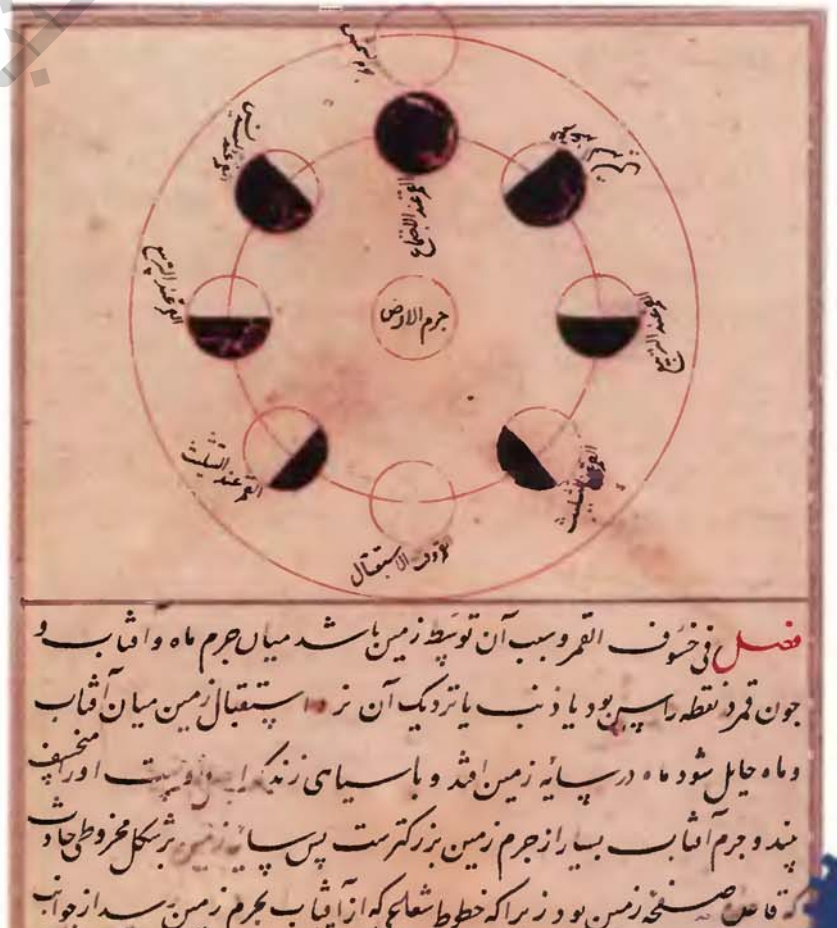 جرم الشمس
القمر عند الاجتماع
القمر عند التسديس
القمر عند التربيع
جرم الارض
القمر عند التثليث
القمر عند التثليث
الاستقبال
فصل فی خسوف القمر و سبب آن توسط زمین باشد میان جرم ماه و افتاب و
جون قمر در نقطه راس بود یا ذنب یا نزدیک آن استقبال زمین میان آفتاب
و ماه حایل شود ماه در سایه زمین افتد و با سیاهی اورا منخسف
بیند و جرم آفتاب بسیار از جرم زمین بزرکترست پس سایه زمین بر شکل مخروطی حادث
که قاعده صفحه زمین بود زیرا که خطوط شعاعی که از آفتاب بجرم زمین رسد از جوانب